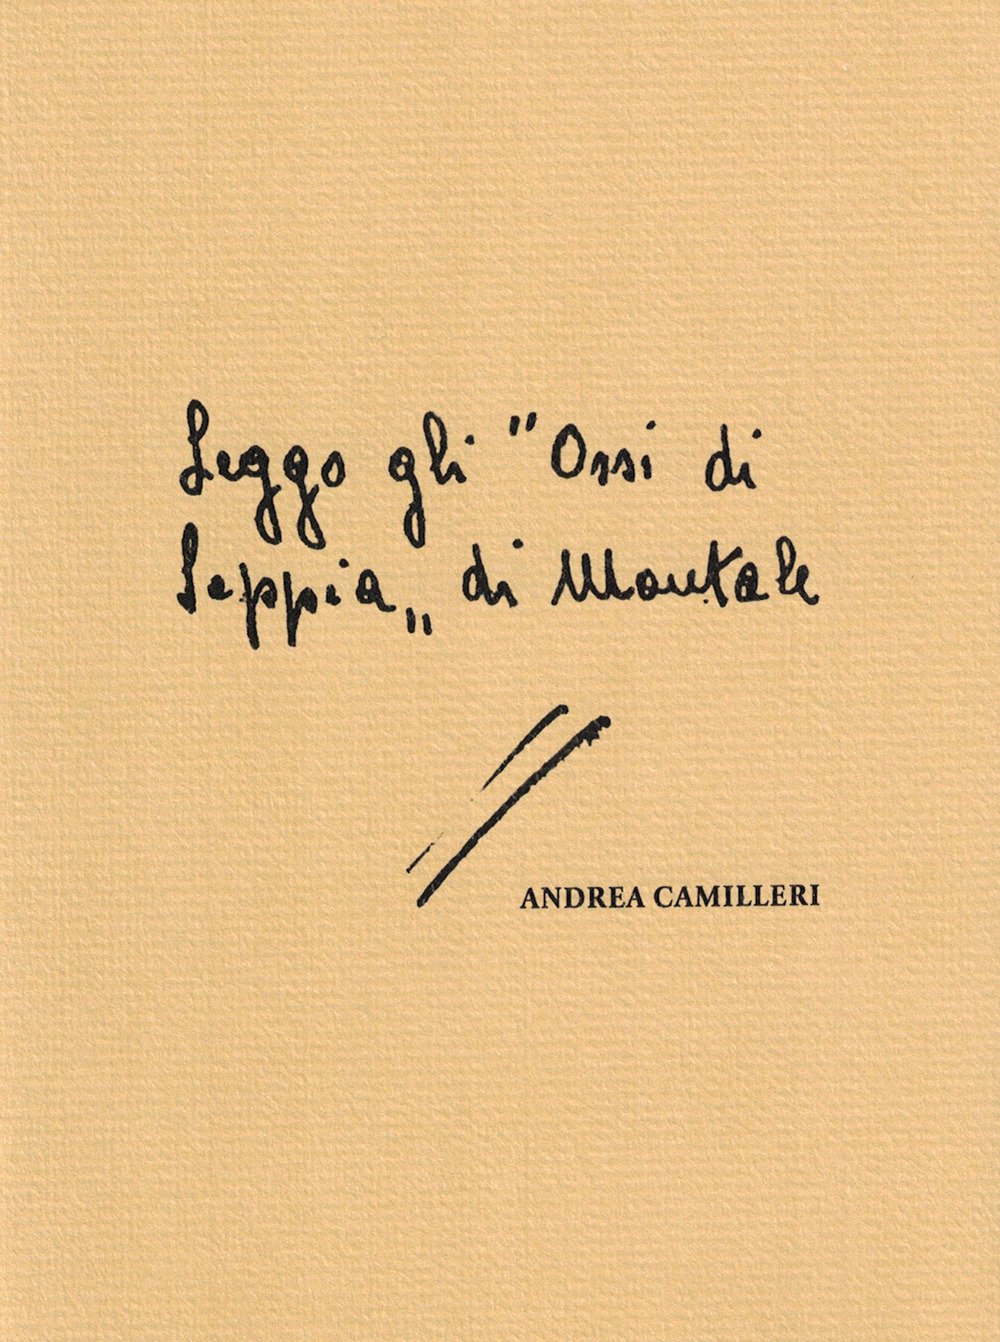 Leggo gli "Ossi di
Seppia„ di Montale
ANDREA CAMILLERI